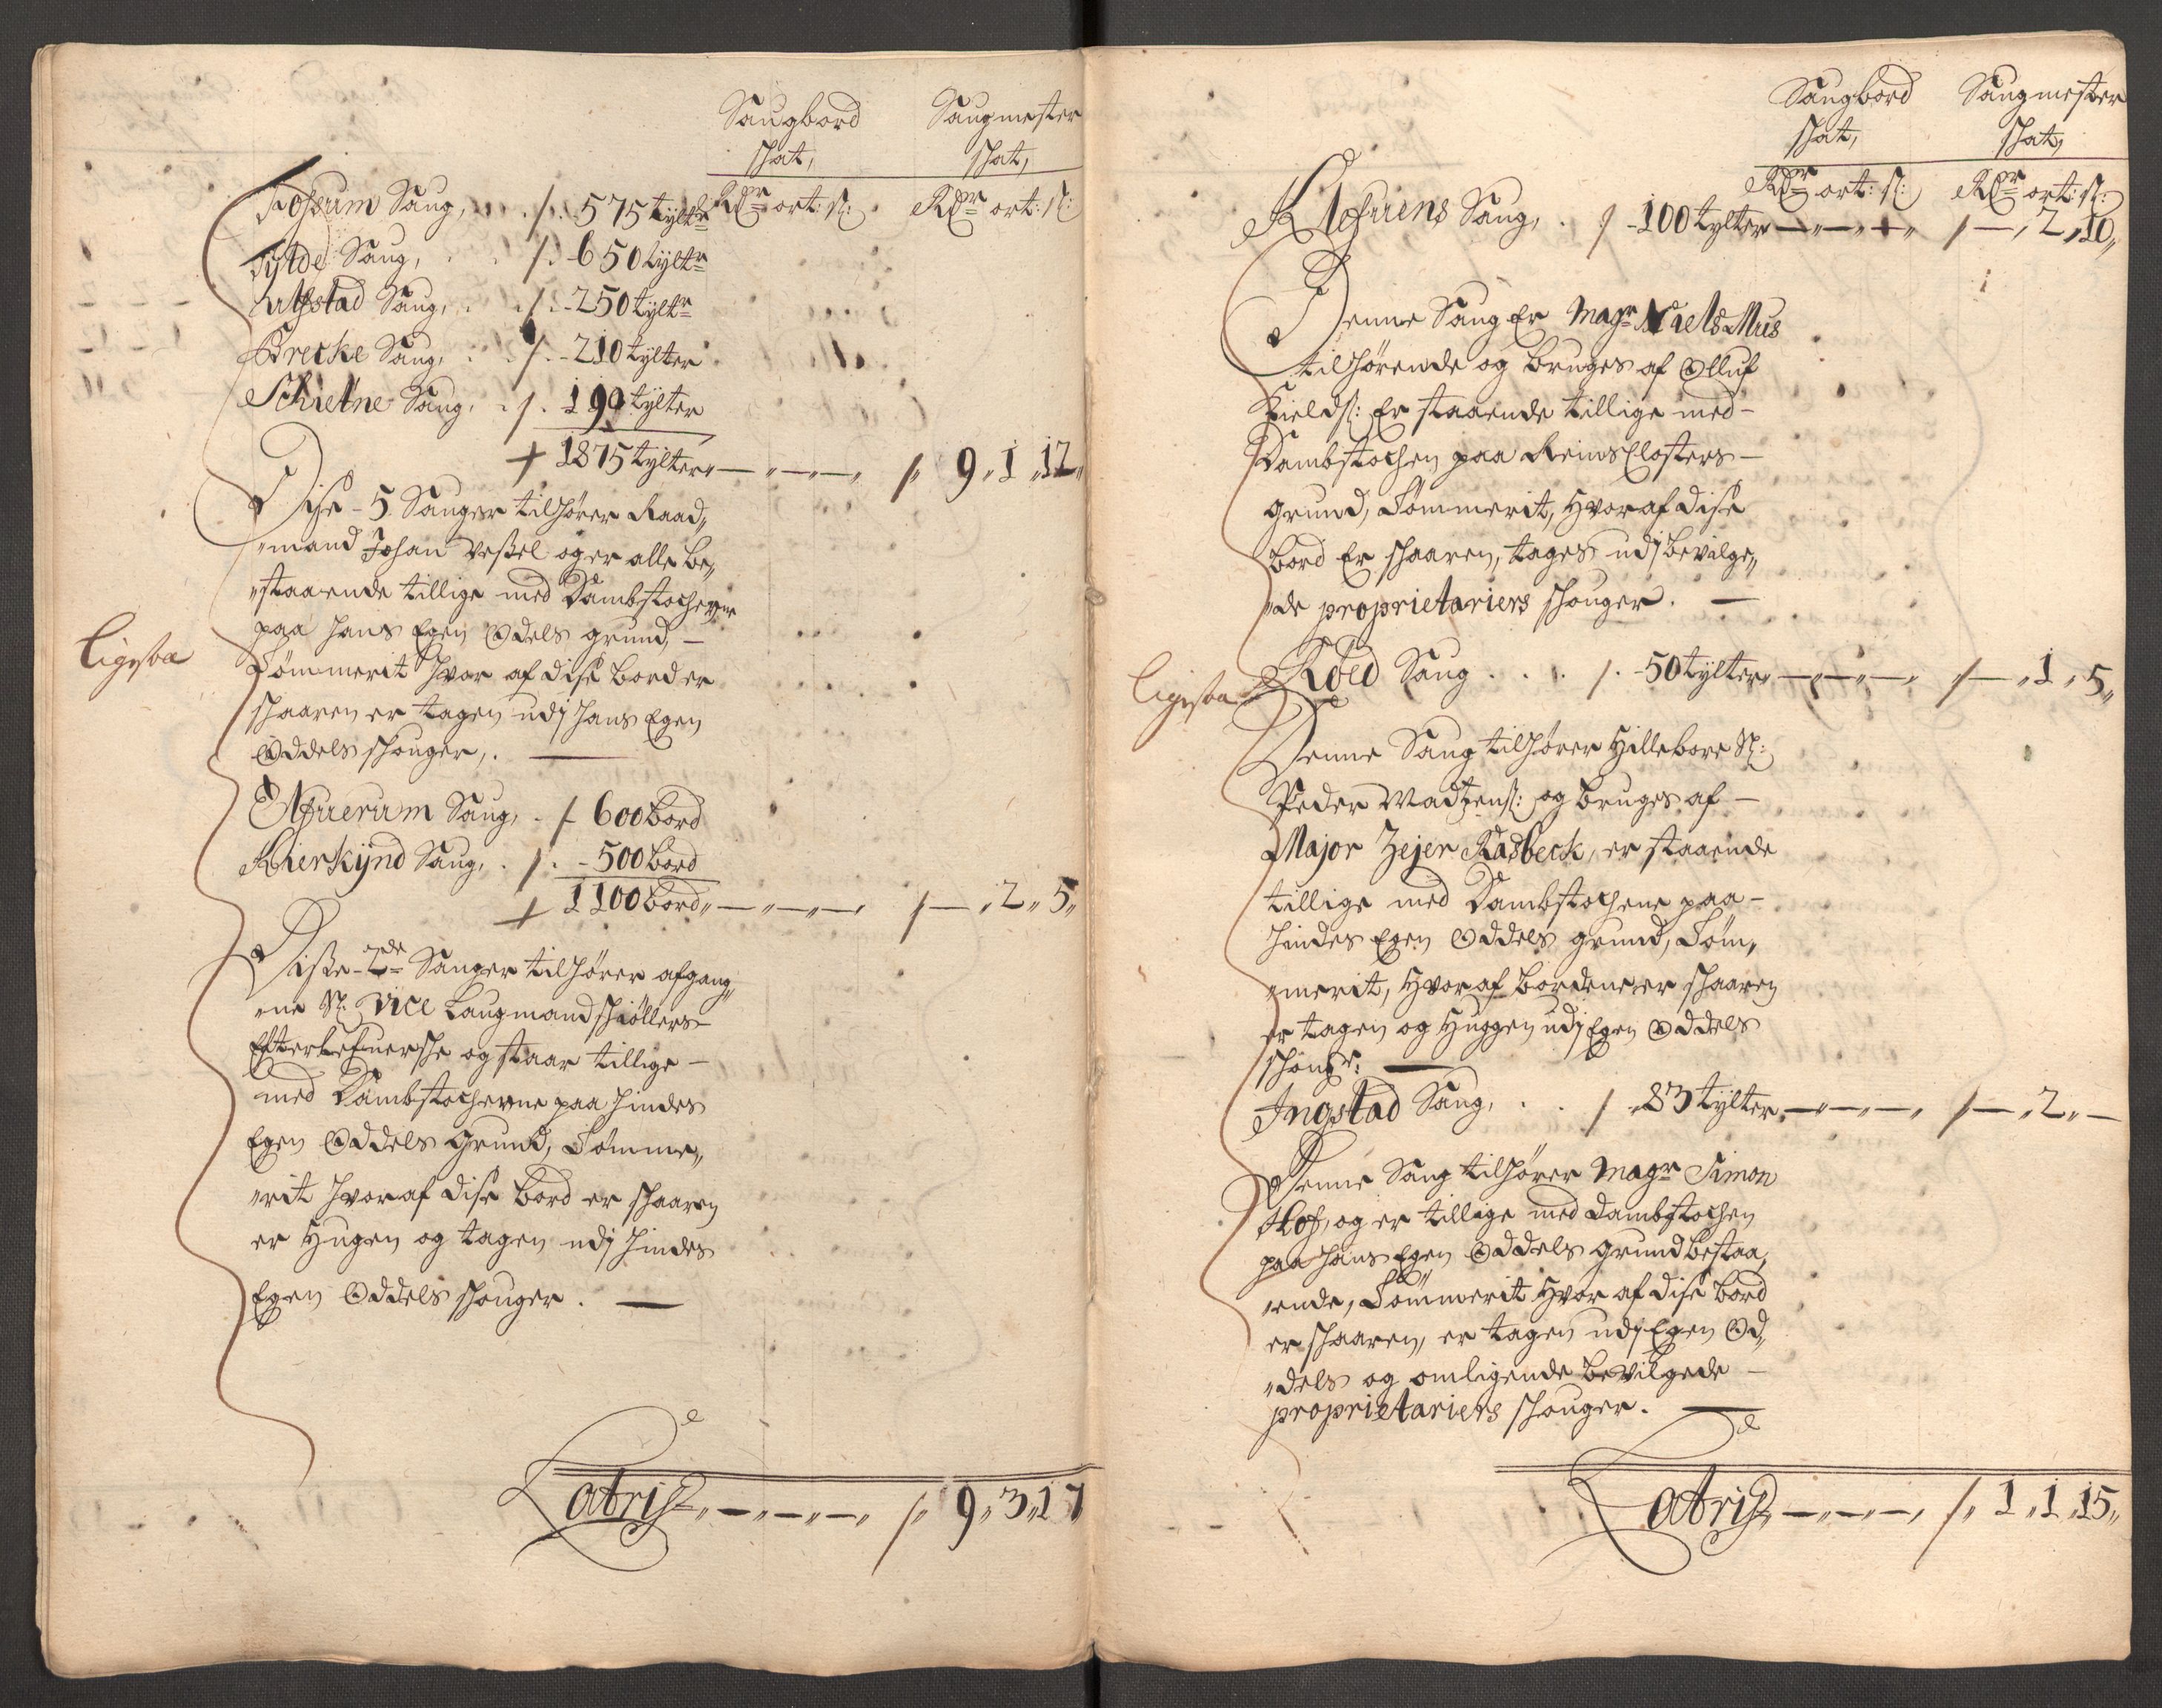 Saugbord Saugmester
schat, schat,
Rdr ort: s: Rdr ort: s:
Fossum Saug, 575 tyltr
Fylde Saug, 650 tyltr
Ulfstad Saug, 250 tyltr
Brecke Saug, 210 tylter
Schietne Saug, 190 tylter
1875 tylter 9 „ 1 „ 12 „
Disse 5 Sauger tilhører Raad„
„mand Johan Vessel og er alle be„
„staaende tillige med Dambstocherne
paa hans Egen Odels grund, –
Tømmerit hvor af disse bord er
schaaren er tagen udj hans Egen
Oddels schouger,.
Ligesaa
Efuerum Saug, 600 bord
Kierkynd Saug, 500 bord
1100 bord – „ 2 „ 5 „
Disse 2de Sauger tilhører afgang„
„ne Sl. Vice Laugmand schiøllers
Efterlefuersche og staar tillige –
med Dambstocherne paa hindes
Egen Oddels Grund, Tømme„
„rit hvoraf disse bord er schaaren
er Hugen og tagen udj hindes
Egen Oddels schouger.
Latris 9 „ 3 „ 17
Saugbord Saugmester
schat, schat,
Rdr ort: s: Rdr ort: s:
Klefuens Saug, 100 tylter – „ 2 „ 10 „
Denne Saug Er Magr Niels Mus
tilhørende og bruges af Olluf
Kields: Er staaende tillige med –
Dambstochen paa Reins Closters –
grund, Tømmerit, Hvoraf disse
bord Er schaaren, tages udj bevilge„
„de proprietariers schouger.
Ligesaa
Røed Saug 50 tylter – „ 1 „ 5 „
Denne Saug tilhører Hillebore Sl:
Peder Madtzens: og bruges af –
Major Zejer Rasbeck, er staaende
tillige med Dambstochene paa –
hindes Egen Oddels grund, Tøm„
„merit, Hvoraf bordene er schaaren
er tagen og Huggen udj Egen Oddels
schougr:
Ingstad Saug, 83 tylter – „ 2 „ –
Denne Saug tilhører Magr Simon
Hof, og er tillige med dambstochen
paa hans Egen Oddels grund bestaa„
„ende, Tømmerit Hvor af disse bord
er schaaren, er tagen udj Egen Od„
„dels og omligende bevilgede –
proprietariers schouger.
Latris 1 „ 1 „ 15 „